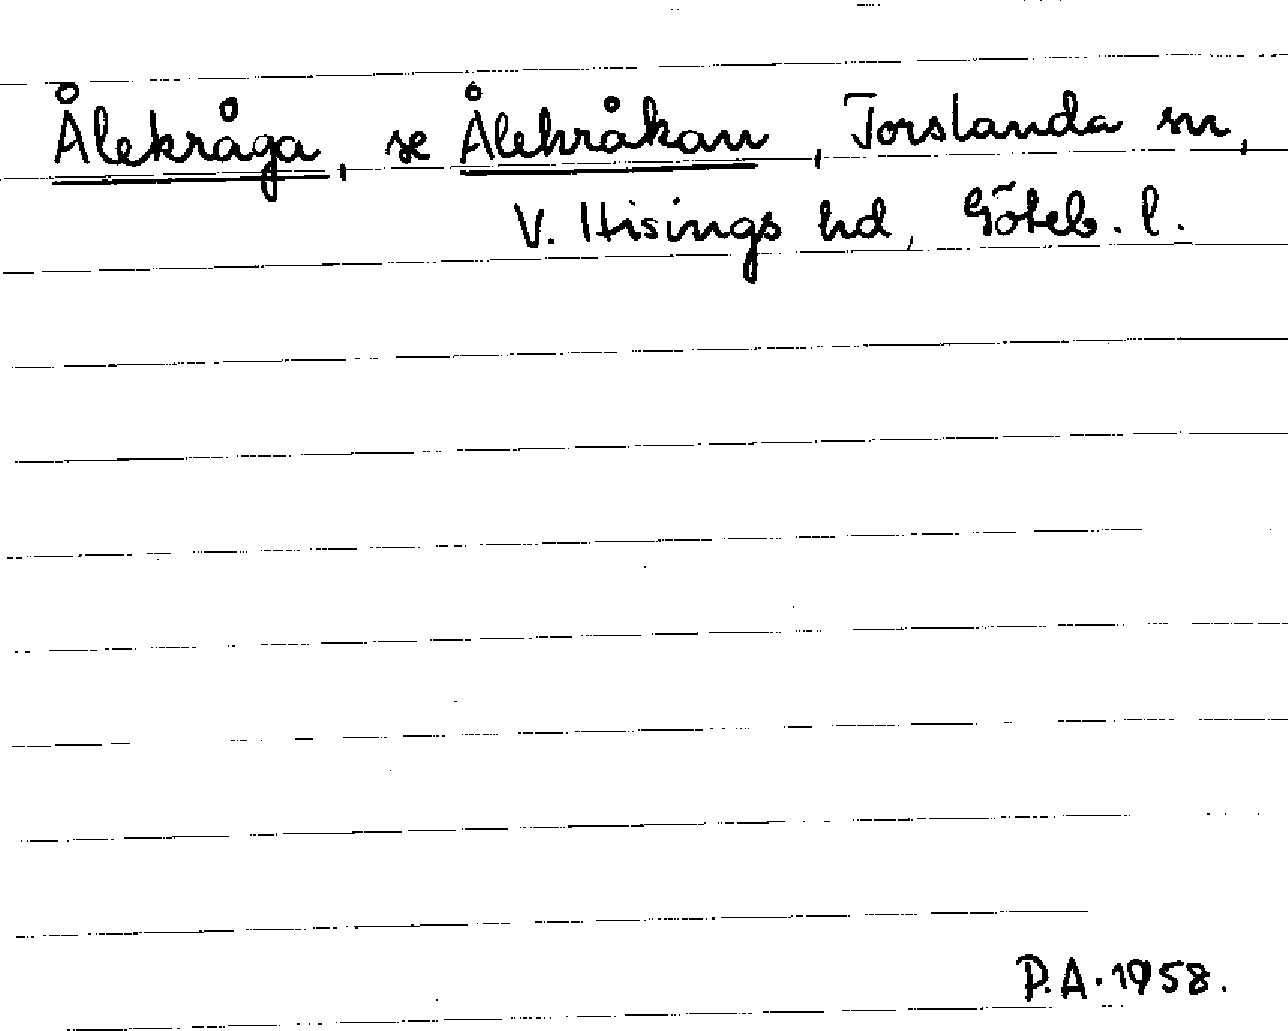 Ålekråga, se Ålekråkan, Torslanda sn,
V. Hisings hd, Göteb. l.
P.A. 1958.